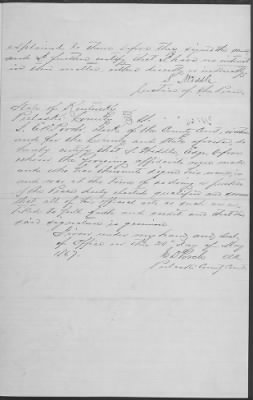 explained to them before they signed the same
and I further certify that I have no interest
in this matter either directly or indirectly
S.
Justice of the Peace
State of Kentucky
Pulaski County
I, Clerk of the County Court, within
and for the County and State aforesaid do
hereby certify that S. Esq. before
whom the foregoing affidavits were made
and who has thereunto signed his name, is
and was at the time of so doing a Justice
of the Peace duly elected qualified and sworn
that all of his official acts as such are en-
titled to full faith and credit and that the
said signature is genuine
Given under my hand and Seal
of Office on this 20th day of May
1867.
Clk
Pulaski County Court